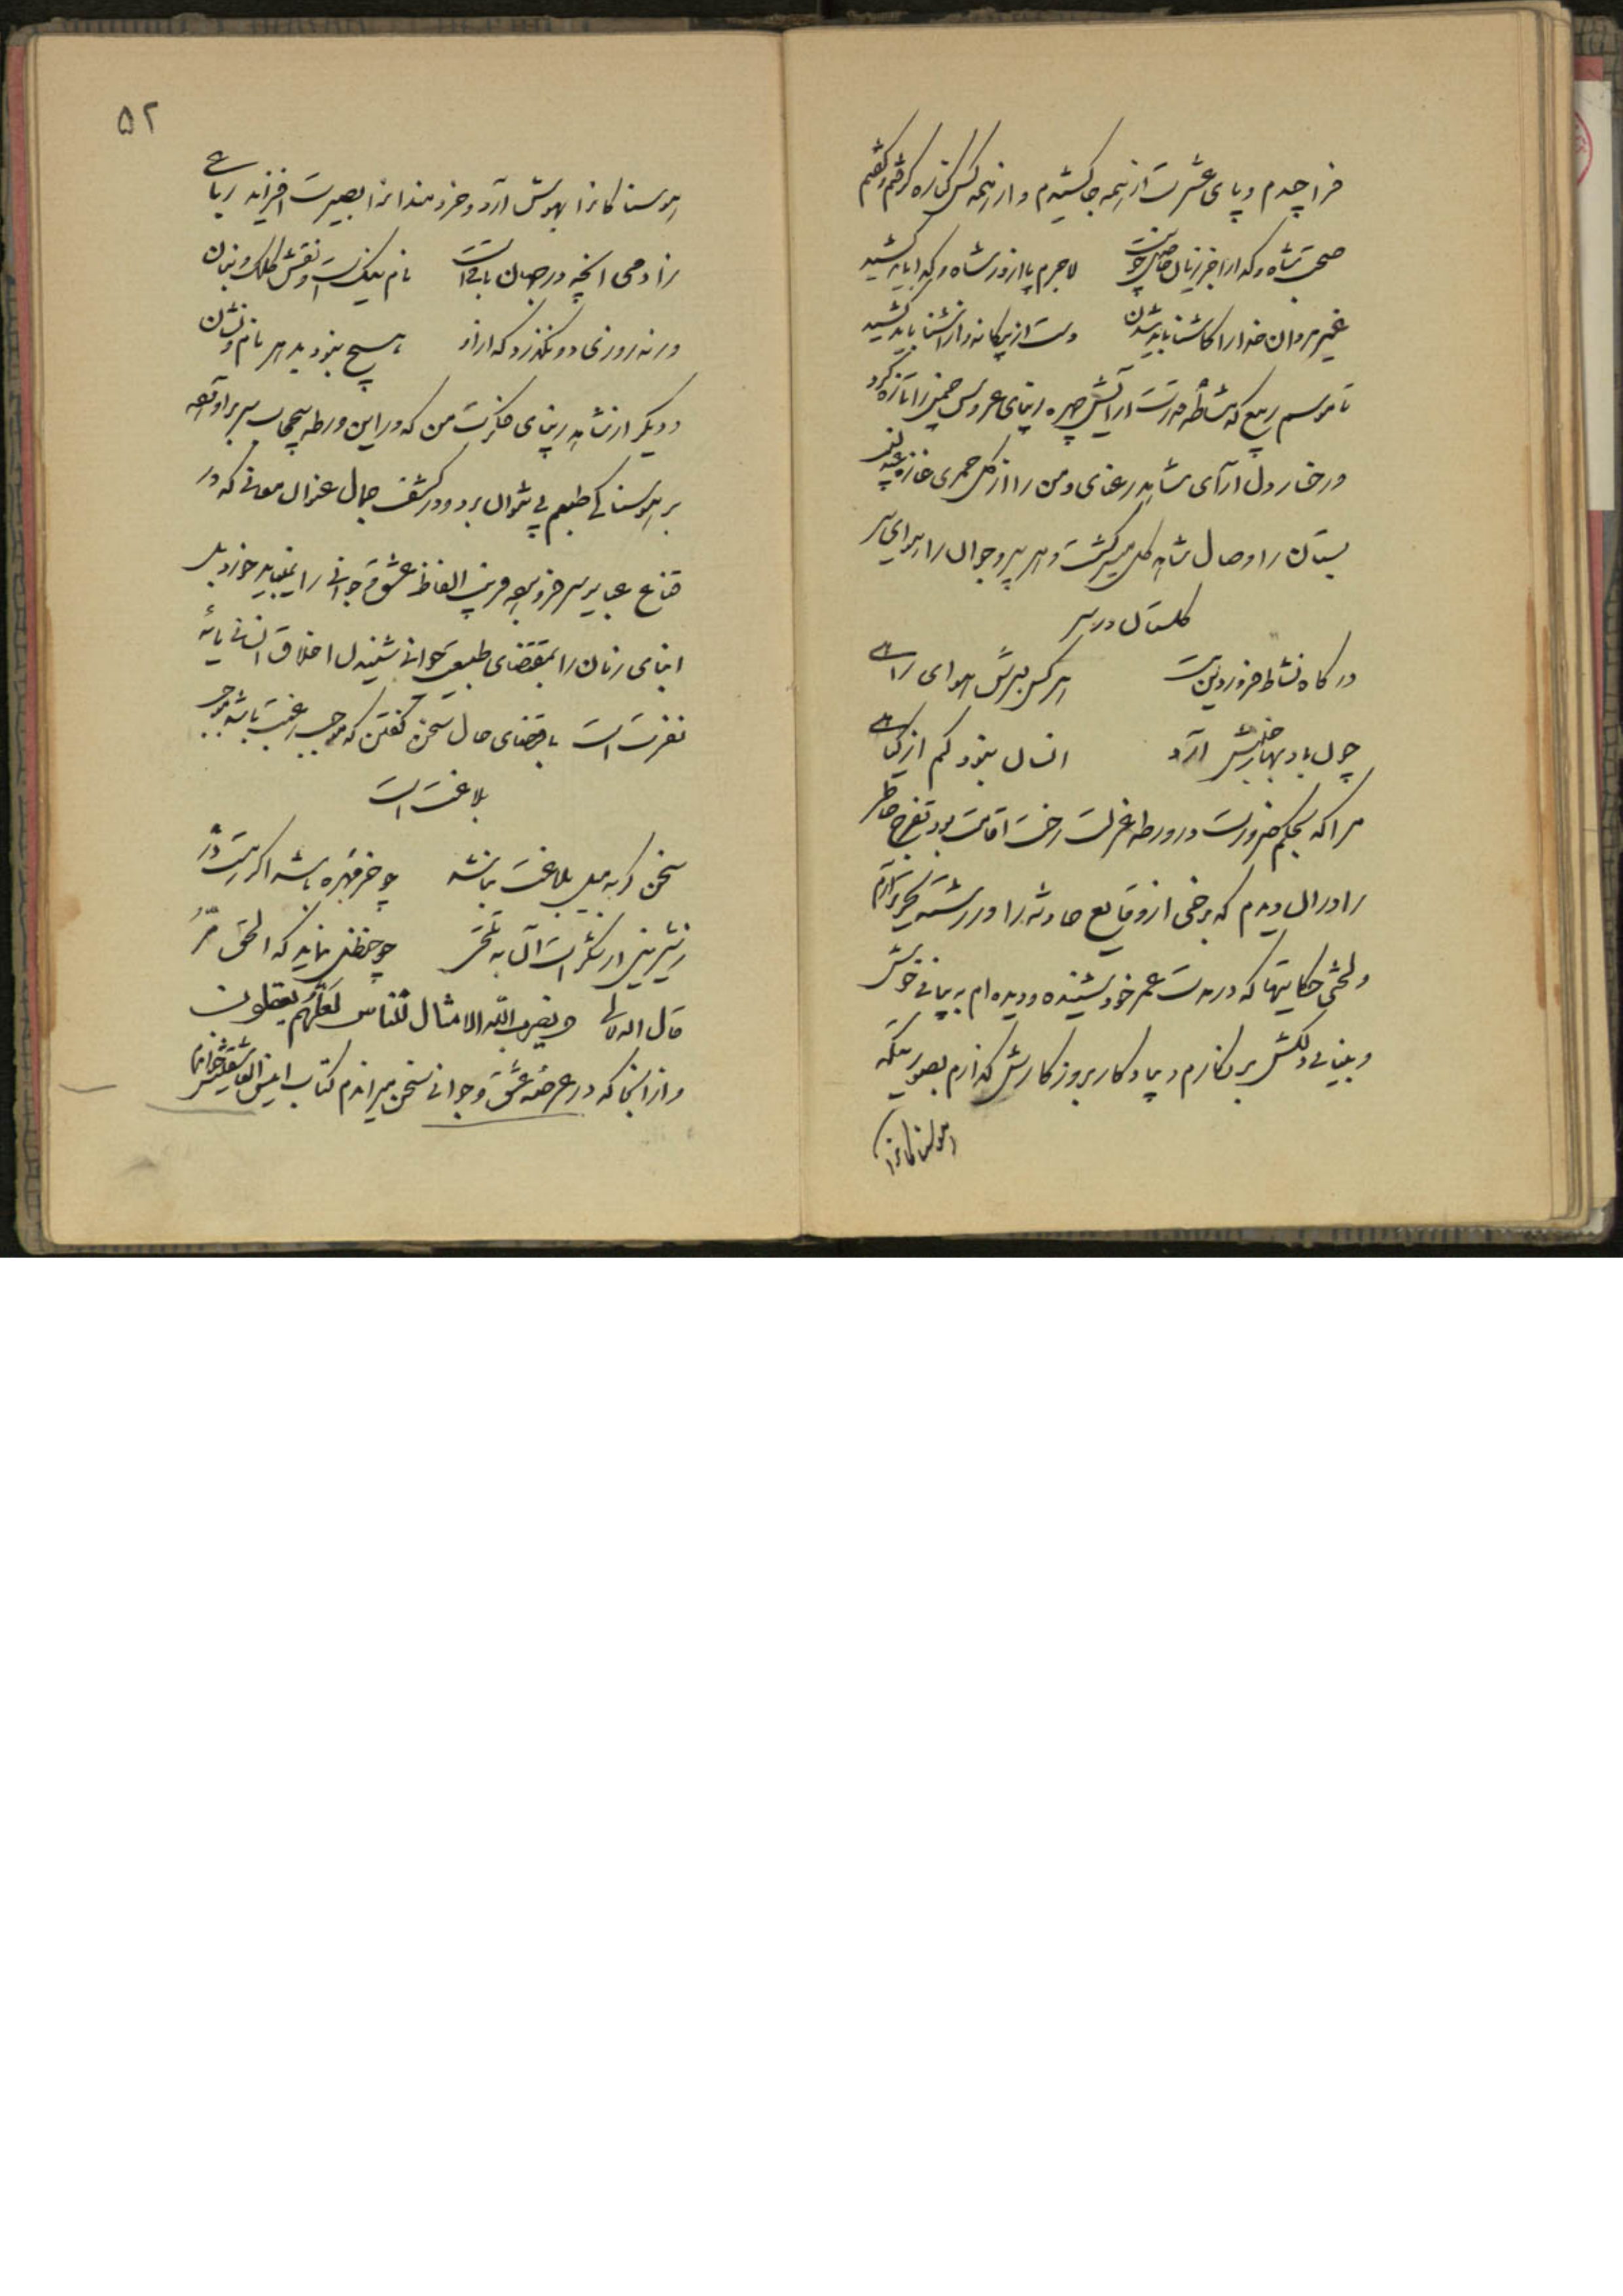 فرا چیدم و پای عشرت از همه جا کشیدم و از همه کس کناره گرفتم و گفتم
صحبت شاه و گدا را جز زیان حاصل چو نیست لاجرم پا از در شاه و گدا باید کشید
غیر مردان خدا را کاشنا باید شدن دست از بیگانه و از آشنا باید کشید
تا موسم ربیع که مشاطه قدرت آرایش چهره زیبای عروس چمن را تازه کرد
و رخسار دل آرای شاهد رعنای دمن را از گل حمری غازه
بستان را وصال شاهد گل میسر گشت و هر پیر و جوان را هوای سیر
گلستان در سر
در گاه نشاط فرودین است هر کس بسرش هوای راهی
چون باد بهار جنبش آرد انسان نبود کم از گیاهی
مرا که بحکم ضرورت در ورطه عزلت رخت اقامت بود تفرج خاطر
را در آن دیدم که برخی از وقایع حادثه را در رشته تحریر آرم
و لختی حکایتها که در مدت عمر خود شنیده و دیده ام به بیانی خوش
و بنانی دلکش بر نگارم و بیادگار بروزگارش گذارم بصورتیکه
هوسناکانرا
۵۲
هوسناکانرا بهوش آرد و خردمندانرا بصیرت افزاید رباعی
زادمی آنچه در جهان باقی است نام نیک است و نقش کلک و بنان
ورنه روزی دو نگذرد که از او هیچ نبود پدید نام و نشان
و دیگر از شاهد زیبای فکرت من که در این ورطه بی حجاب سر بر آورد
بر هوسناکی طبعم پی نتوان برد و در کشف جمال غزال معانی که در
قناع عبایر سر فرو برده فریب الفاظ عشق و جوانی را نمیباید خورد بل
ابنای زمان را بمقتضای طبیعت جوانی شنیدن اخلاق انسانی مایه
نفرت است باقتضای حال سخن گفتن که موجب رغبت باشد موجب
بلاغت است
سخن گر به میل بلاغت نباشد چو خرمهره باشد اگر هست در
قال الله تعالی و یضرب الله الامثال للناس لعلهم یعقلون
و از آنجا که در عرصه عشق و جوانی سخن میراندم کتاب انیس العاشقینش خواندم